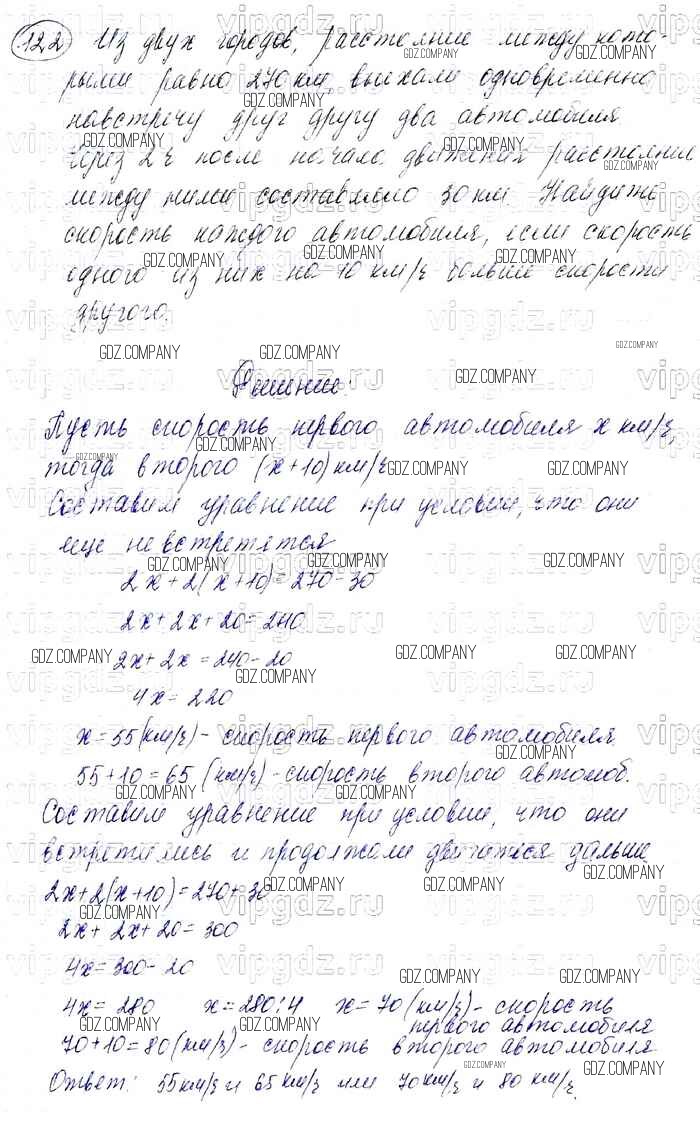 122 Из двух городов, расстояние между кото-
рыми равно 270 км, выехали одновременно
навстречу друг другу два автомобиля
Через 2 ч после начала движения расстояние
между ними составляло 30 км. Найдите
скорость каждого автомобиля, если скорость
одного из них на 10 км/ч больше скорости
другого.
Решение:
Пусть скорость первого автомобиля x км/ч,
тогда второго (x+10) км/ч
Составим уравнение при условии, что они
еще не встретятся
2x+2(x+10)=270-30
2x+2x+20=240
2x+2x=240-20
4x=220
x=55(км/ч)-скорость первого автомобиля
55+10=65 (км/ч)-скорость второго автомоб.
Составим уравнение при условии, что они
встретились и продолжали двигаться дальше
2x+2(x+10)=270+30
2x+2x+20=300
4x=300-20
4x=280 x=280:4 x=70(км/ч)-скорость
первого автомобиля
70+10=80(км/ч)-скорость второго автомобиля
Ответ: 55км/ч и 65 км/ч или 70км/ч и 80 км/ч.
GDZ.COMPANY
vipgdz.ru